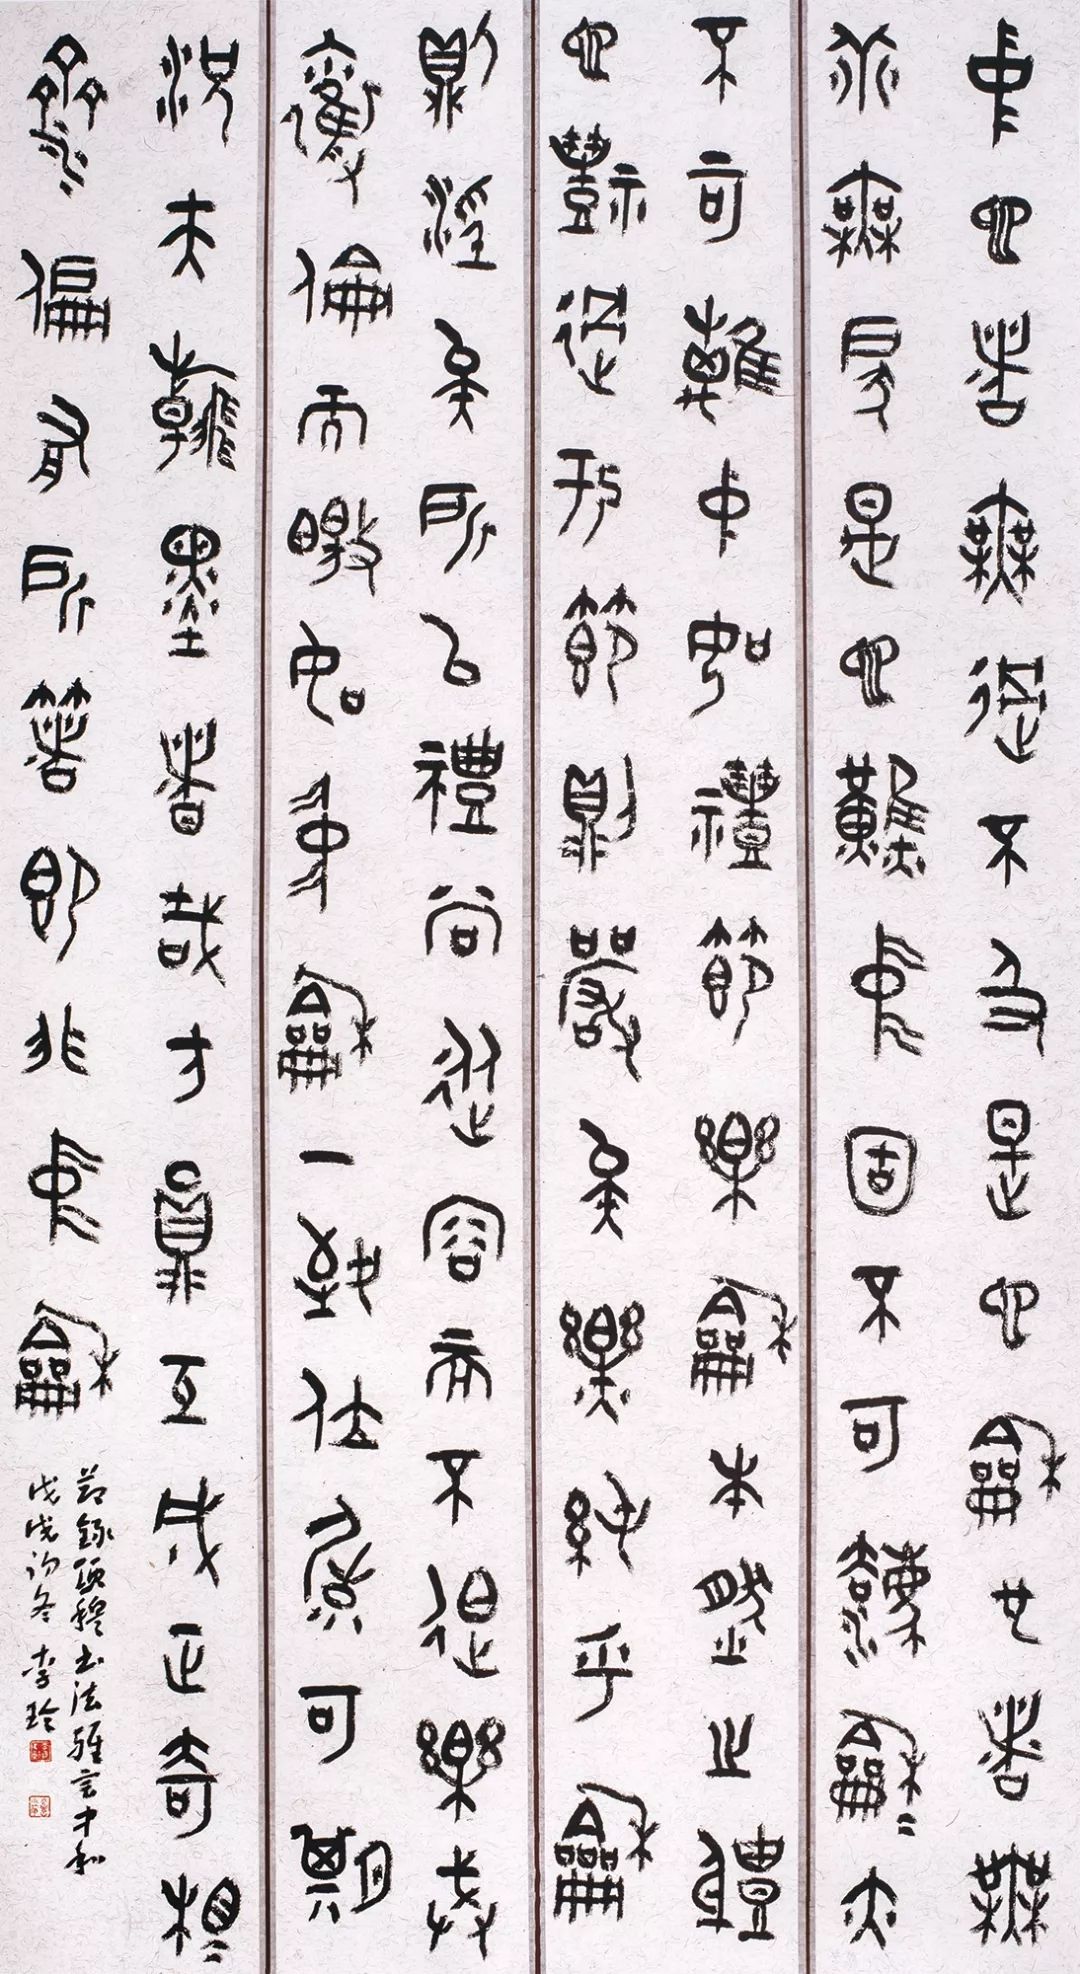 中也者無過不及是也和也者無
乖無戾是也然中固不可廢和=亦
不可離中如禮節樂和本然之體
也禮過於節則嚴矣樂純乎和
則淫矣所以禮尚從容而不迫樂戒
奪倫而皦如中和一致位育可期
況夫翰墨者哉方圓互成正奇相
濟偏有所著即非中和
節錄項穆書法雅言中和
戊戌初冬李玲